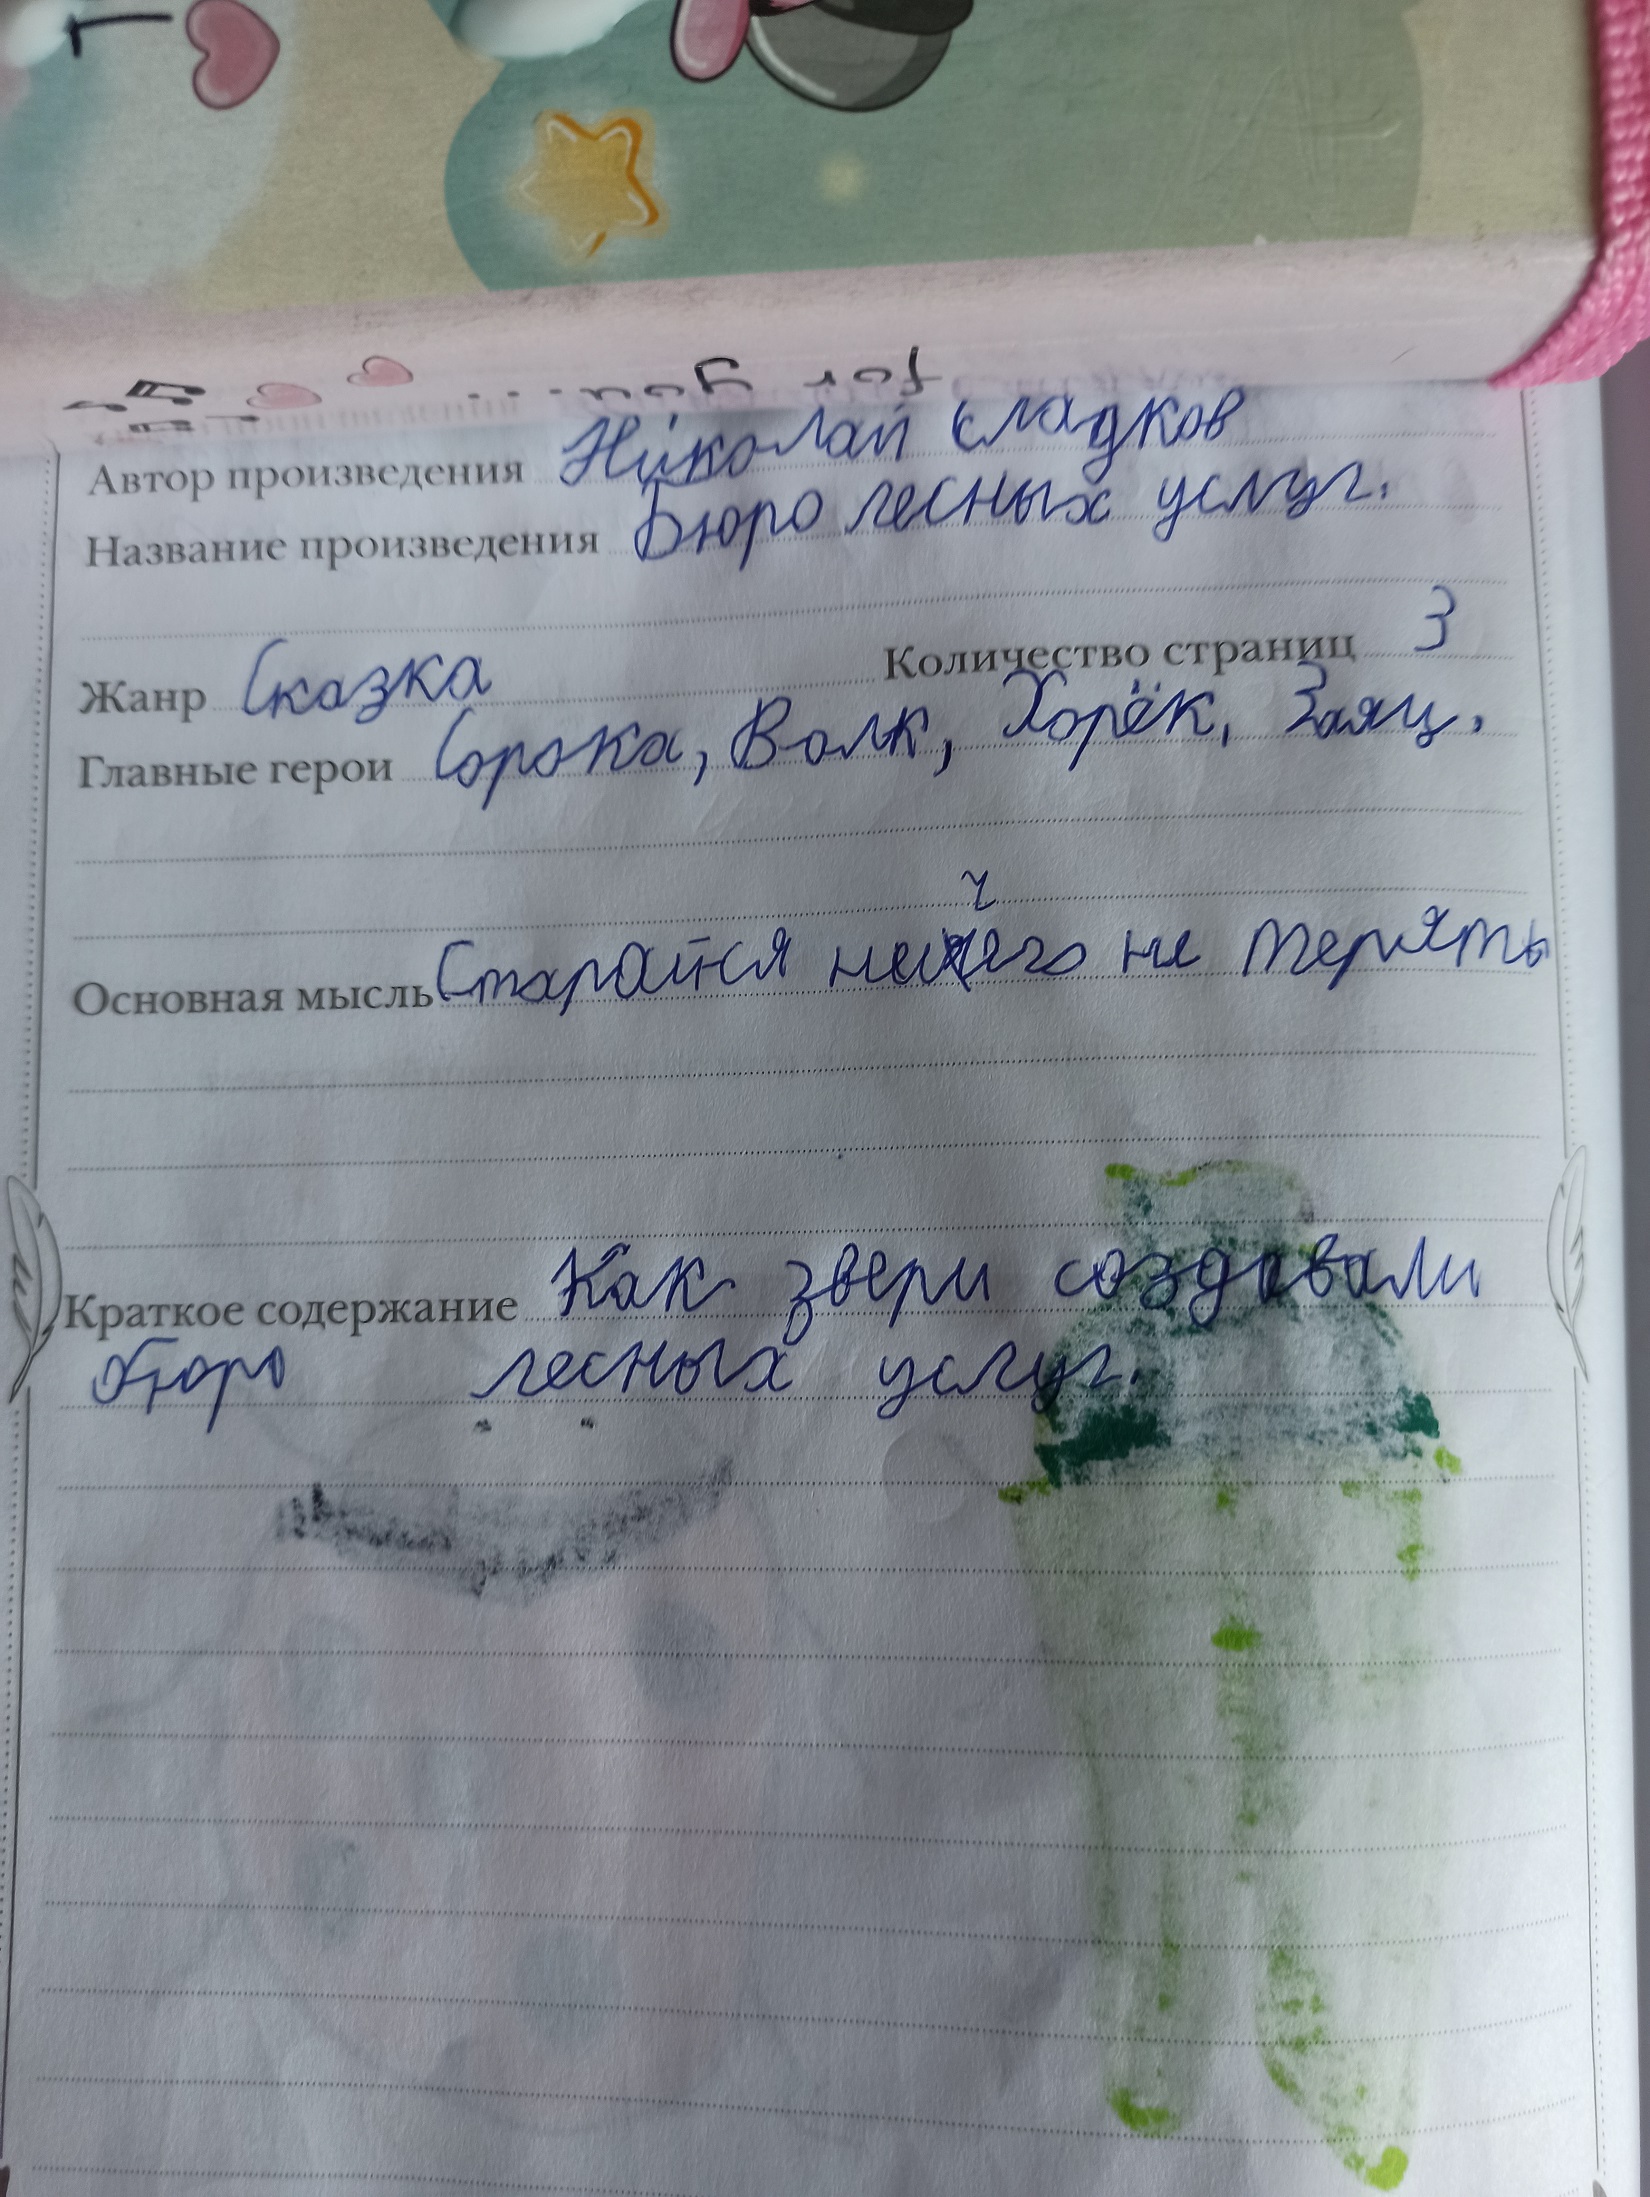 for you...
Автор произведения Николай Сладков
Название произведения Бюро лесных услуг.
Жанр Сказка Количество страниц 3
Главные герои Сорока, Волк, Хорёк, Заяц.
ч
Основная мысль Старайся нечего не терять
Краткое содержание Как звери создавали
бюро лесных услуг.